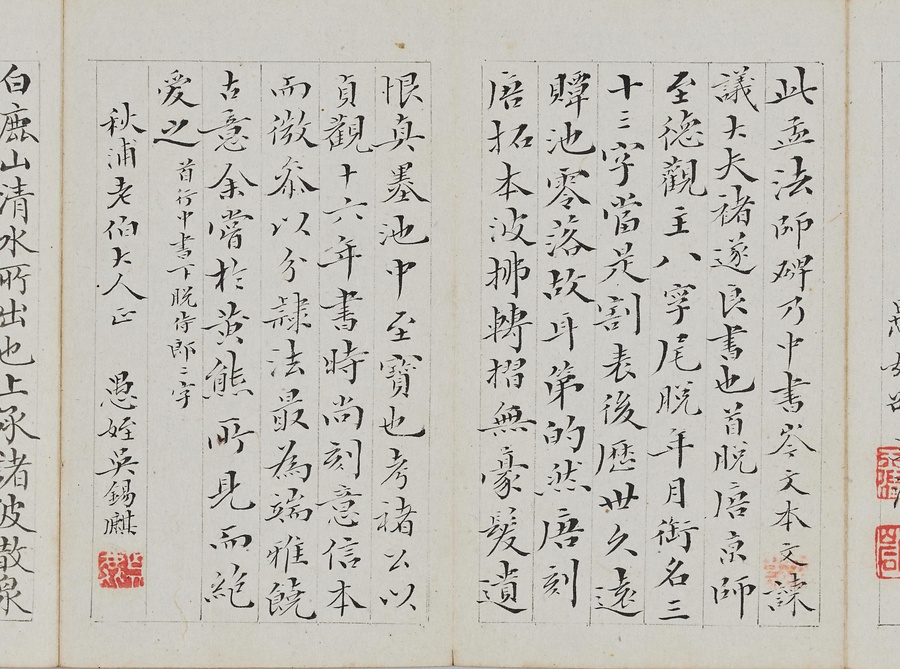 此孟法師碑乃中書岑文本文諫
議大夫褚遂良書也首脫唐京師
至德觀主八字尾脫年月銜名三
十三字當是割表後歷世久遠
贉池零落故耳第的然唐刻
唐拓本波拂轉摺無豪髮遺
恨真墨池中至寶也考褚公以
貞觀十六年書時尚刻意信本
而微參以分隸法最為端雅饒
古意余嘗於黃熊所見而絕
愛之 首行中書下脫侍郎二字
秋浦老伯大人正 愚姪吳錫麒
白鹿山清水所出也上承諸陂散泉